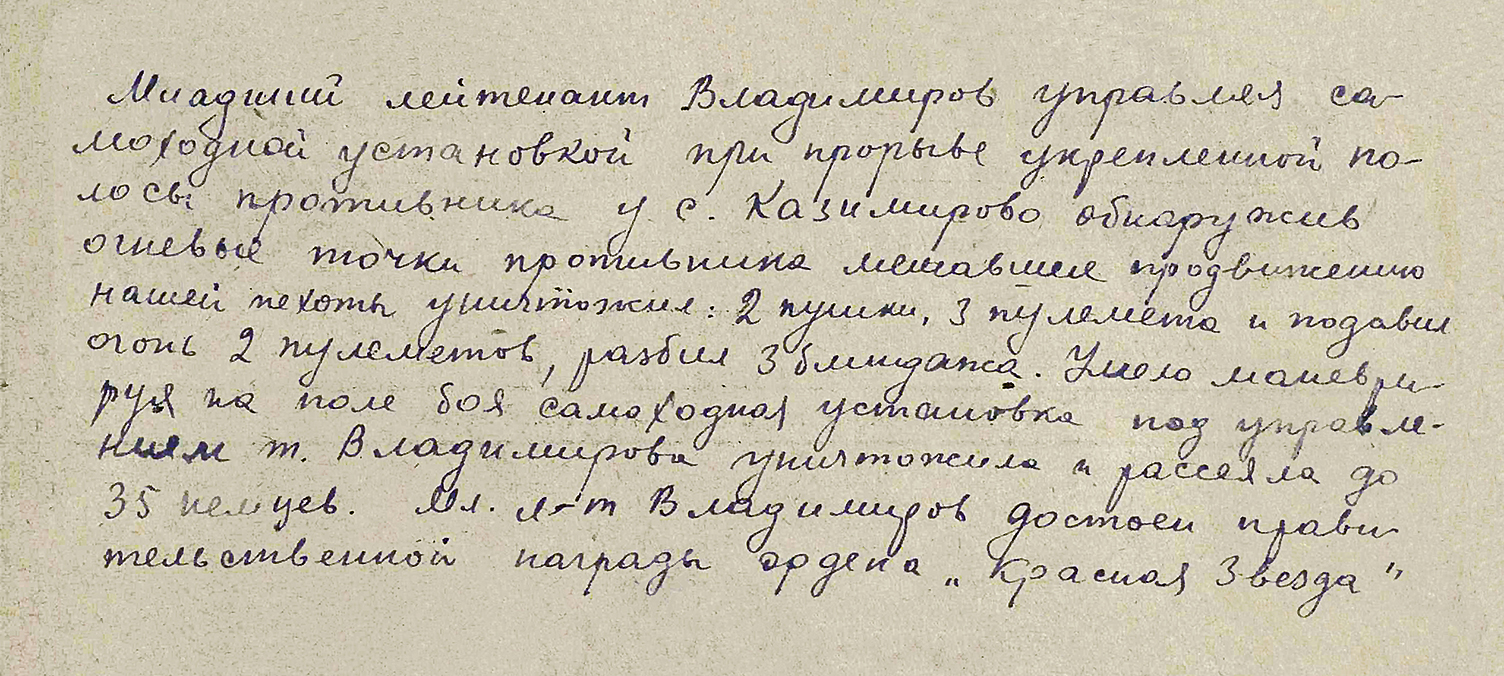 Младший лейтенант Владимиров управляя са-
моходной установкой при прорыве укрепленной по-
лосы противника у с. Казимирово обнаружив
огневые точки противника мешавшие продвижению
нашей пехоты уничтожил: 2 пушки, 3 пулемета и подавил
огонь 2 пулеметов, разбил 3 блиндажа. Умело маневри-
руя на поле боя самоходная установка под управле-
нием т. Владимирова уничтожила и рассеяла до
35 немцев. Мл. л-т Владимиров достоен прави-
тельственной награды ордена „Красная Звезда"